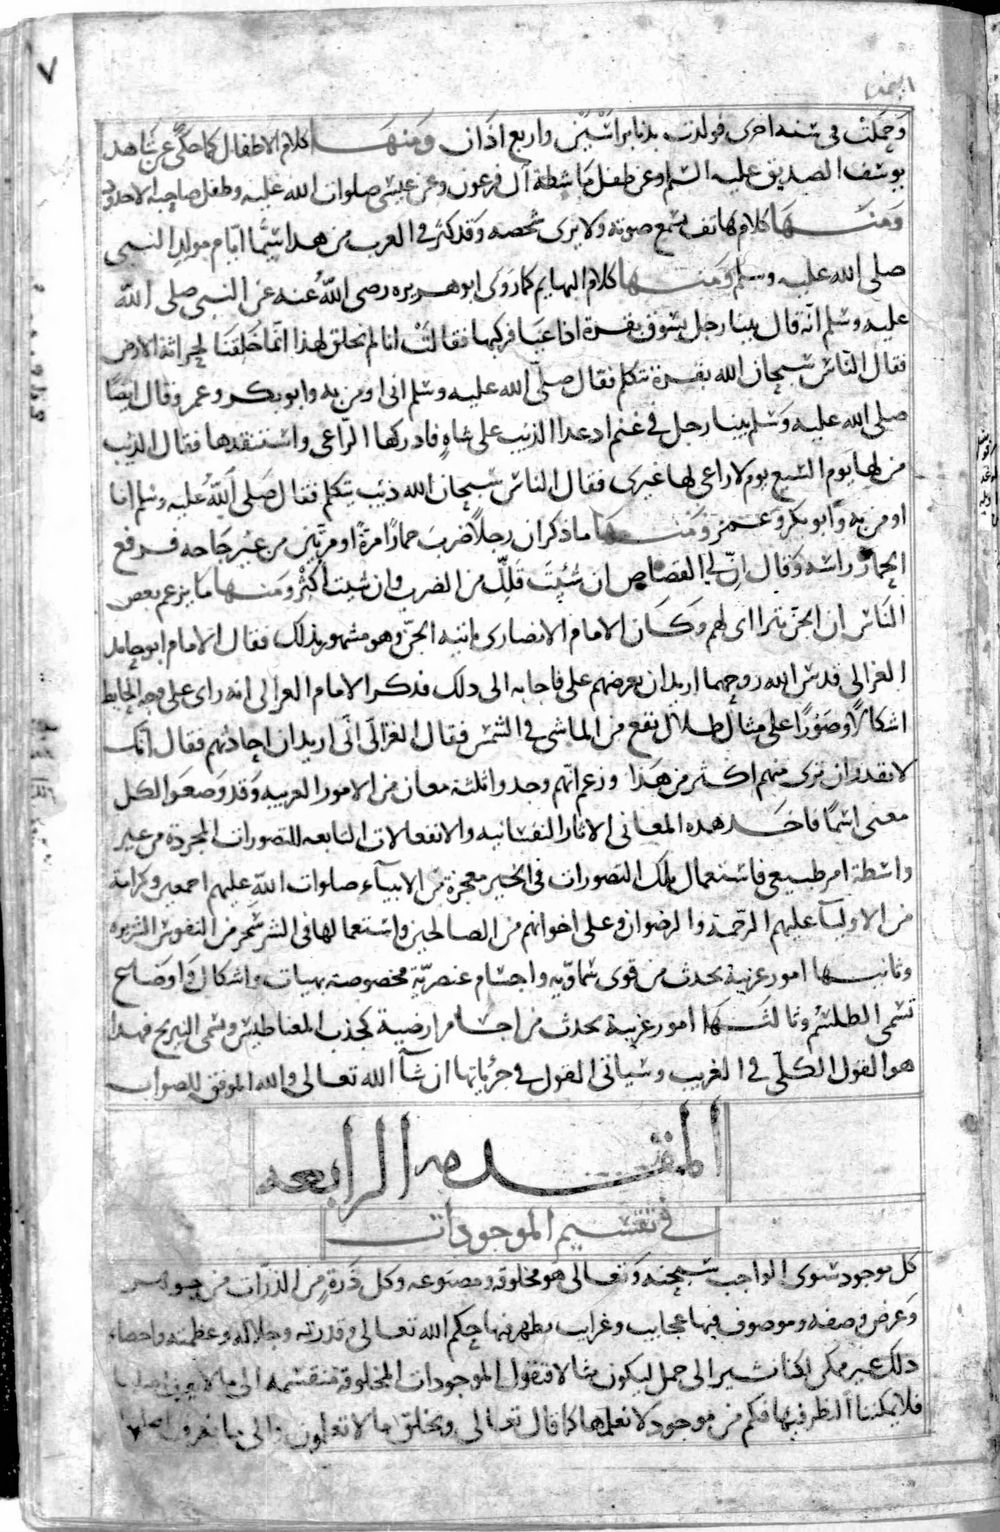 ٧
وحملت فى سنه اخرى فولدت بدنا براسين واربع اذان ومنها كلام الاطفال كما حكى عن شاهد
يوسف الصديق عليه السلم وعن طفل ماشطة آل فرعون وعن عيسى صلوات الله عليه وطفل صاحبة الاخدود
ومنها كلام هاتف يسمع صوته ولا يرى شخصه وقد كثر فى العرب من هذا سيما ايام مولد النبى
صلى الله عليه وسلم ومنها كلام البهايم كما روى ابو هريره رضى الله عنه عن النبى صلى الله
عليه وسلم انه قال بينا رجل يسوق بقرة اذا عيا فركبها فقالت انا لم نخلق لهذا انما خلقنا لحراثة الارض
فقال الناس سبحان الله بقرة تتكلم فقال صلى الله عليه وسلم انى اومن به وابو بكر وعمر وقال ايضا
صلى الله عليه وسلم بينا رجل فى غنم اذ عدا الذيب على شاه فادركها الراعى واستنقذها فقال الذيب
من لها يوم السبع يوم لا راعى لها غيرى فقال الناس سبحان الله ذيب يتكلم فقال صلى الله عليه وسلم انا
اومن به وابو بكر وعمر ومنها ما ذكر ان رجلا ضرب حمارا مرة او مرتين من غير حاجه فرفع
الحمار راسه وقال ان لى القصاص ان شيت قلل من الضرب وان شيت اكثر ومنها ما يزعم بعض
الناس ان الجن تتراأى لهم وكان الامام الانصارى ياتيه الجن وهو مشهور بذلك فقال الامام ابو حامد
الغزالى قدس الله روحهما اريد ان تعرضهم على فاجابه الى ذلك فذكر الامام الغزالى انه راى على وجه الحايط
اشكالا وصورا على مثال ظلال تقع من الماشى فى الشمس فقال الغزالى انى اريد ان احادثهم فقال انك
لا تقدر ان ترى منهم اكثر من هذا وزعم انهم وجدوا ثلثة معان من الامور الغريبه وقد وضعوا لكل
معنى اسما فاحد هذه المعانى الاثار النفسانيه والانفعالات التابعه للتصورات المجردة من غير
واسطة امر طبيعى فاستعمال تلك التصورات فى الخير معجزة من الانبياء صلوات الله عليهم اجمعين وكرامة
من الاوليآ عليهم الرحمة والرضوان وعلى اخوانهم من الصالحين واستعمالها فى الشر سحر من النفوس الشريره
وثانيها امور غريبة تحدث من قوى سماويه واجسام عنصرية مخصوصة بهيات واشكال واوضاع
تسمى الطلسم وثالثها امور غريبة تحدث من اجسام ارضية كجذب المغناطيس وتسمى النيرنج فهذا
هو القول الكلى فى الغريب وسياتى القول فى جزئياتها ان شآ الله تعالى والله الموفق للصواب
المقدمه الرابعه
فى تقسيم الموجودات
كل موجود سوى الواجب سبحنه وتعالى هو مخلوقه ومصنوعه وكل ذرة من الذرات من جوهر
وعرض وصفه وموصوف فيها عجايب وغرايب يظهر فيها حكم الله تعالى وقدرته وجلاله وعظمته واحصاء
ذلك غير ممكن لكنا نشير الى جمل ليكون مثالا فنقول الموجودات المخلوقة منقسمه الى ما لا يعرف اصلها
فلا يمكننا النظر فيها فكم من موجود لا نعلمها كما قال تعالى ويخلق ما لا تعلمون والى ما نعرف اصلها